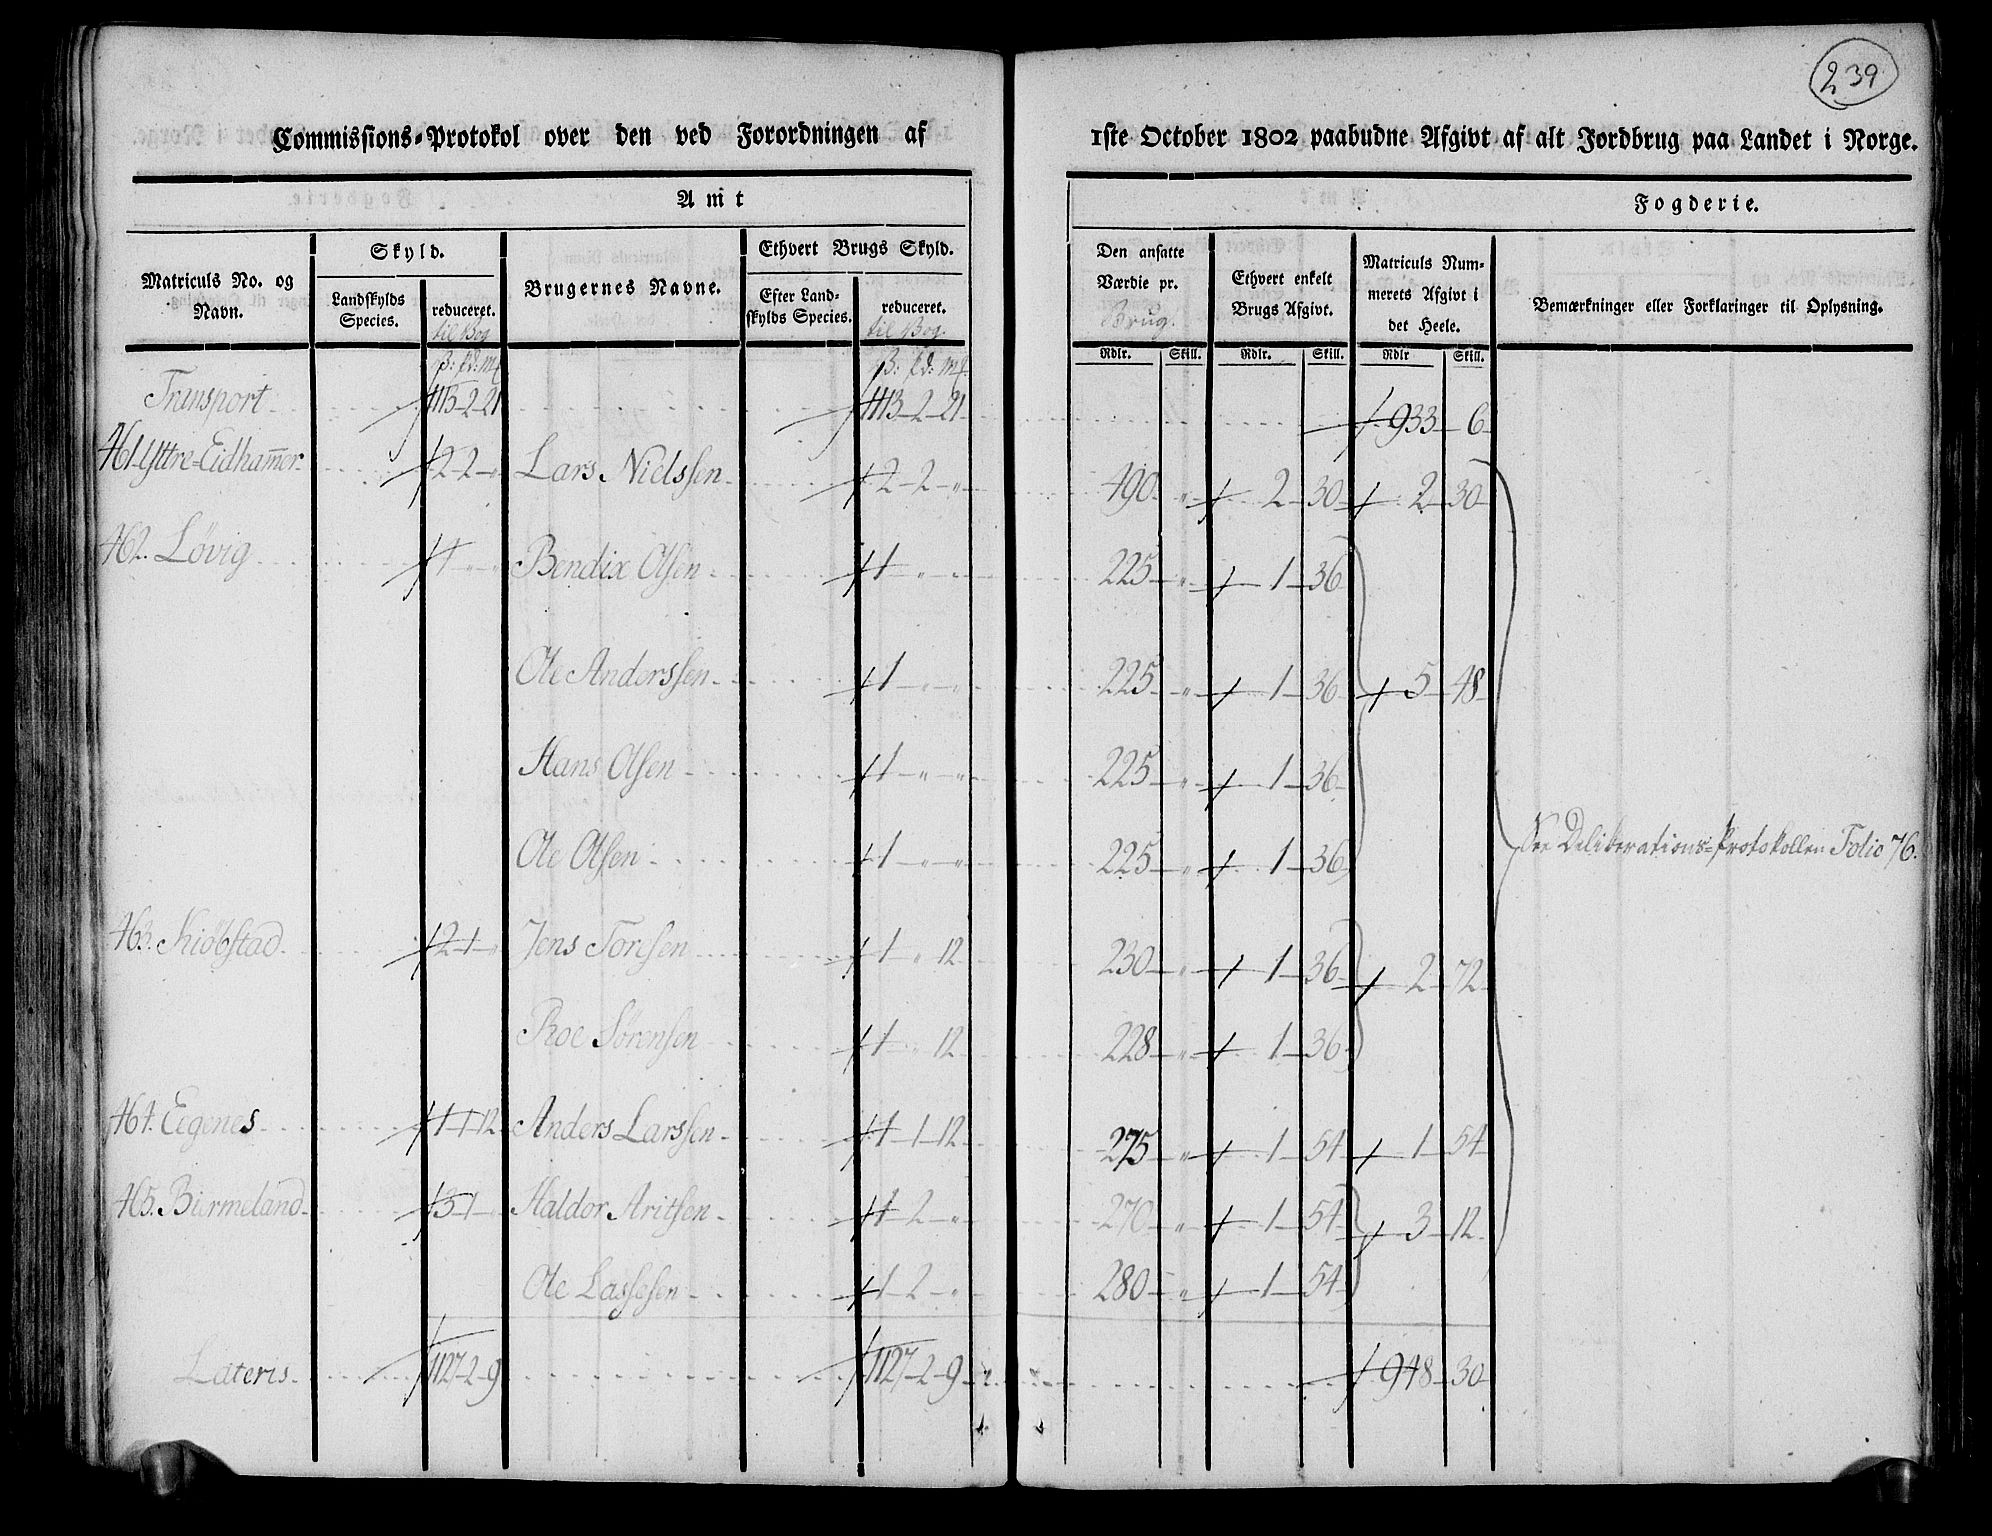 239
Commissions-Protokol over den ved Forordningen af 1ste October 1802 paabudne Afgivt af alt Jordbrug paa Landet i Norge.
Amt Fogderie.
Matriculs No. og Navn. Skyld. Landskylds Species. reduceret. til Bog Brugernes Navne. Ethvert Brugs Skyld. Efter Landskylds Species. reduceret. til Bog. Den ansatte Værdie pr. Brug. Ethvert enkelt Brugs Afgivt. Matriculs Nummerets Afgivt i det Heele. Bemærkninger eller Forklaringer til Oplysning.
Rdlr. Skill. Rdlr. Skill. Rdlr Skill.
Transport 1113-2-21 1113-2-21 933-6
461. Yttre-Eidhammer 2-2-" Lars Nielssen 2-2-" 490-" 2-30 2-30
462. Løvig Bendix Olsen 1-"-" 225-" 1-36
Ole Anderssen 1-"-" 225-" 1-36 5-48
Hans Olsen 1-"-" 225-" 1-36
Ole Olsen 1-"-" 225-" 1-36
See Deliberations-Protokollen Folio 76.
463. Kiöbstad 2-1-" Jens Torisen 1-"-12 230-" 1-36 2-72
Roe Sørensen 1-"-12 228-" 1-36
464. Eegenes 1-1-12 Anders Larssen 1-1-12 275-" 1-54 1-54
465. Biermeland 3-1-" Haldor Aritsen 1-2-" 270-" 1-54 3-12
Ole Lassesen 1-2-" 280-" 1-54
Lateris 1127-2-9 1127-2-9 948-30